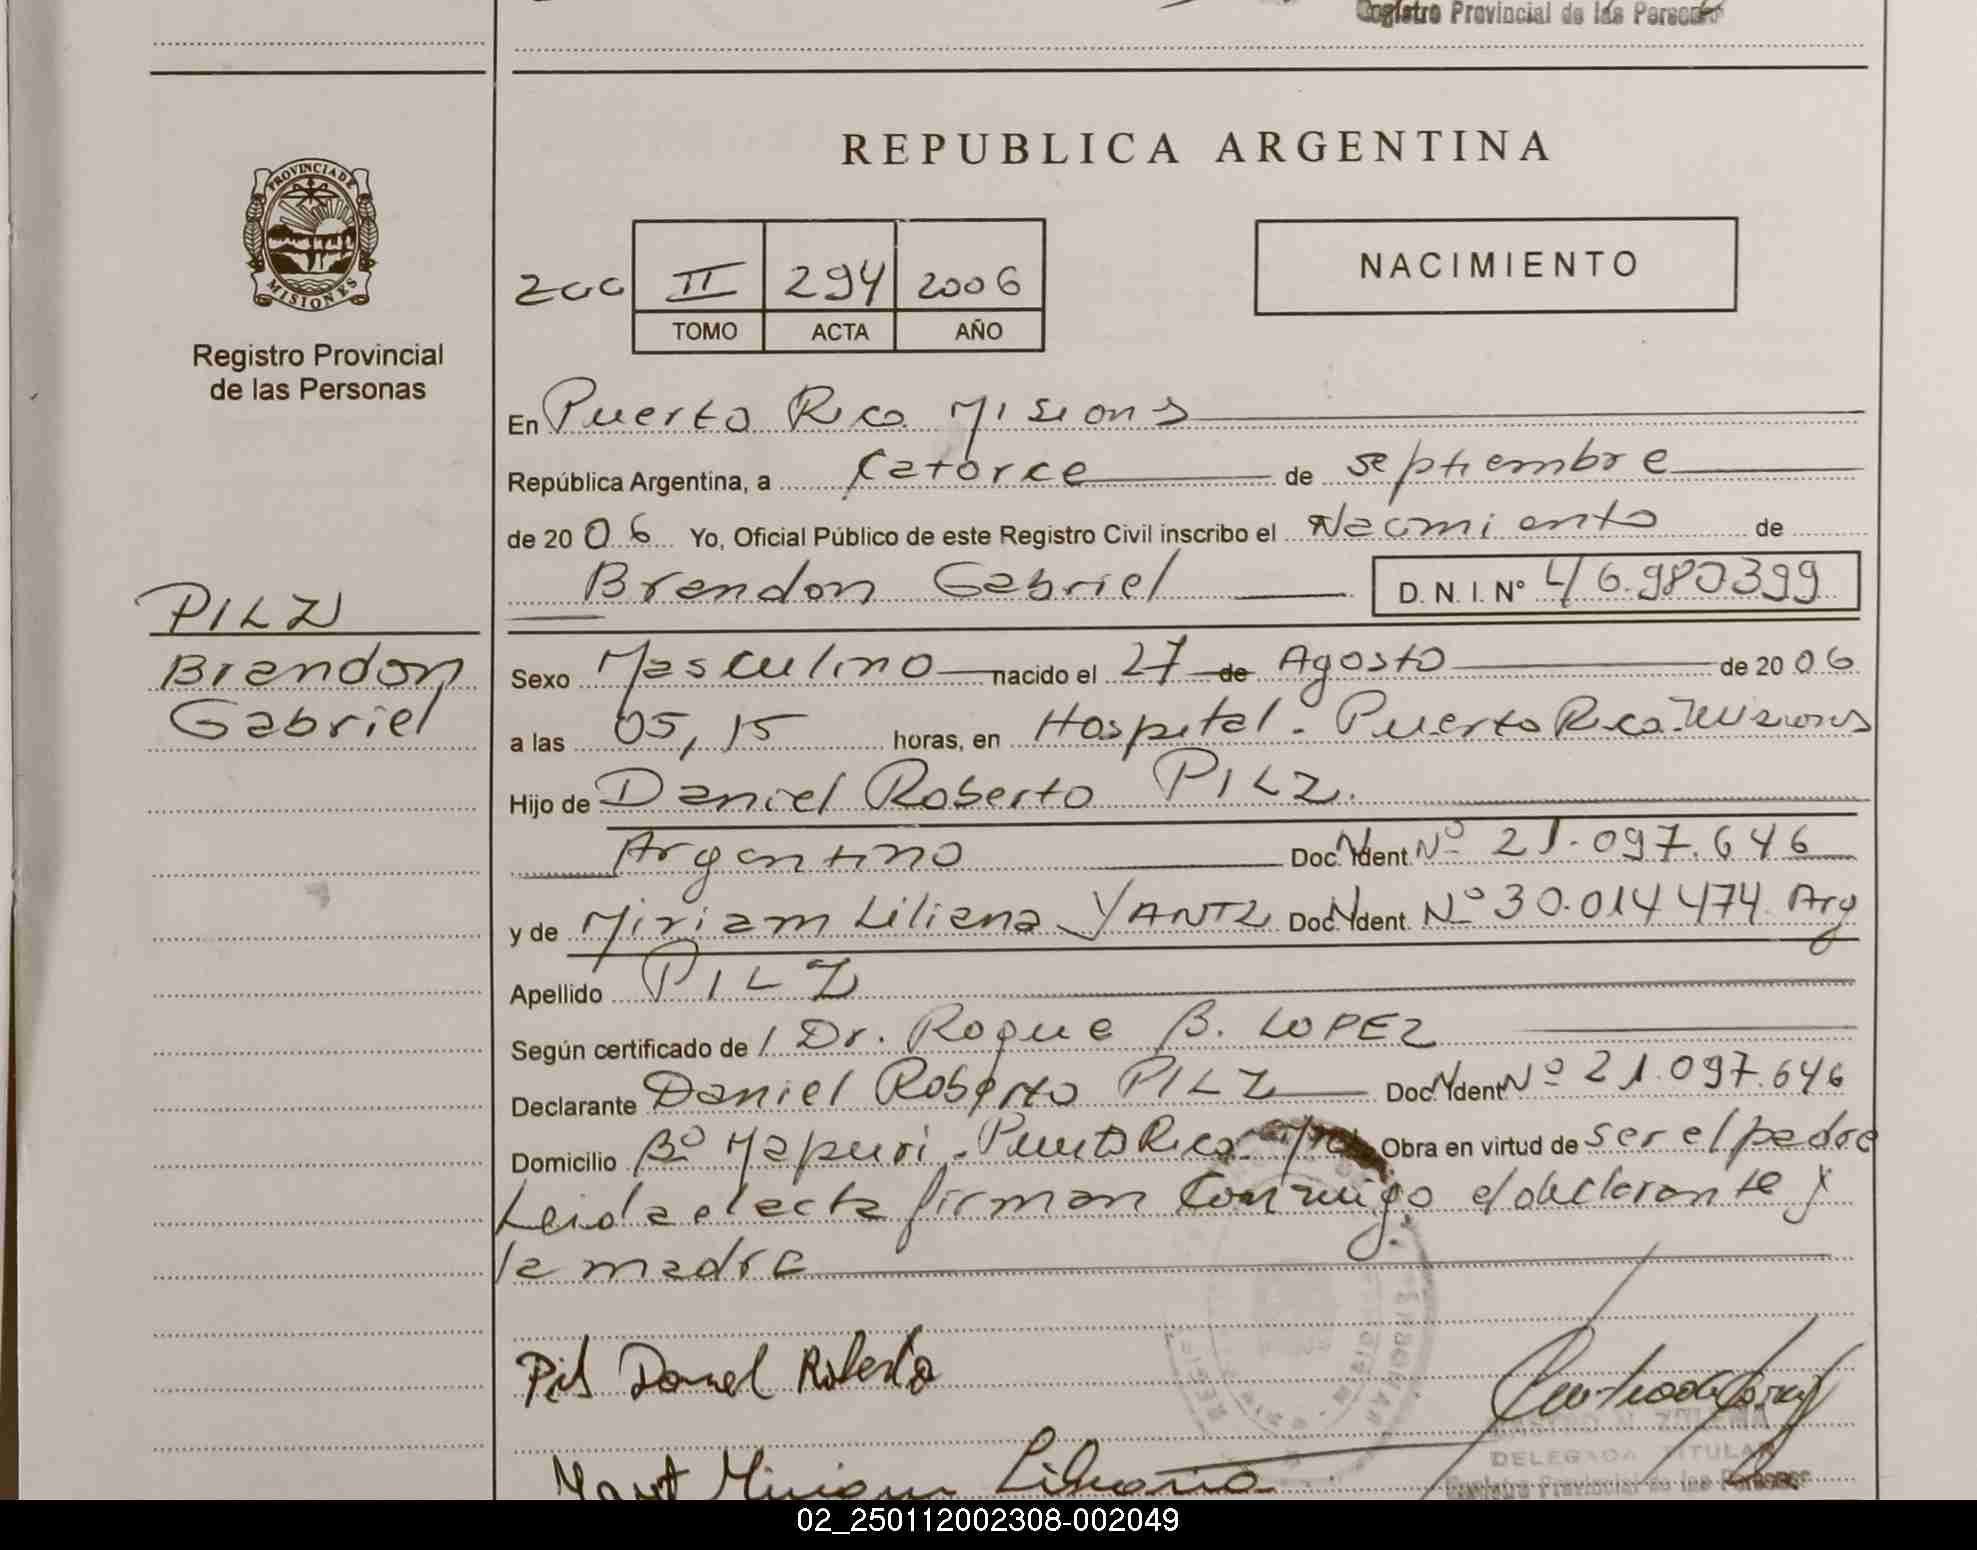 Registro Provincial de las Personas
PROVINCIA DE
MISIONES
Registro Provincial
de las Personas
PILZ
Brandon
Gabriel
REPUBLICA ARGENTINA
II 294 2006
TOMO ACTA AÑO
NACIMIENTO
En Puerto Rico Misions
República Argentina, a Catorce de septiembre
de 20 06 Yo, Oficial Público de este Registro Civil inscribo el Nacimiento de
Brandon Gabriel D. N. I. N° 46.980399
Sexo Masculino nacido el 27 de Agosto de 20 06
a las 05,15 horas, en Hospital - Puerto Rico Misiones
Hijo de Daniel Roberto PILZ.
Argentino Doc. Ident. Nº 21.097.646
y de Miriam Liliana YANTZ Doc. Ident. Nº 30.014474 Arg
Apellido PILZ
Según certificado de Dr. Roque B. LOPEZ
Declarante Daniel Roberto PILZ Doc. Ident Nº 21.097.646
Domicilio Bº Mapuri - Puerto Rico Obra en virtud de ser el padre
Leida el acta firman conmigo el declarante y
la madre
Daniel Roberto
Miriam Liliana
DELEGADA TITULAR
Registro Provincial de las Personas
02_250112002308-002049